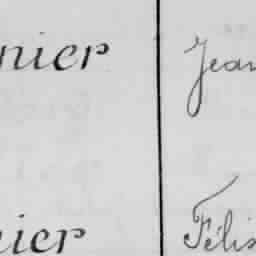 nier Jean
nier Félix